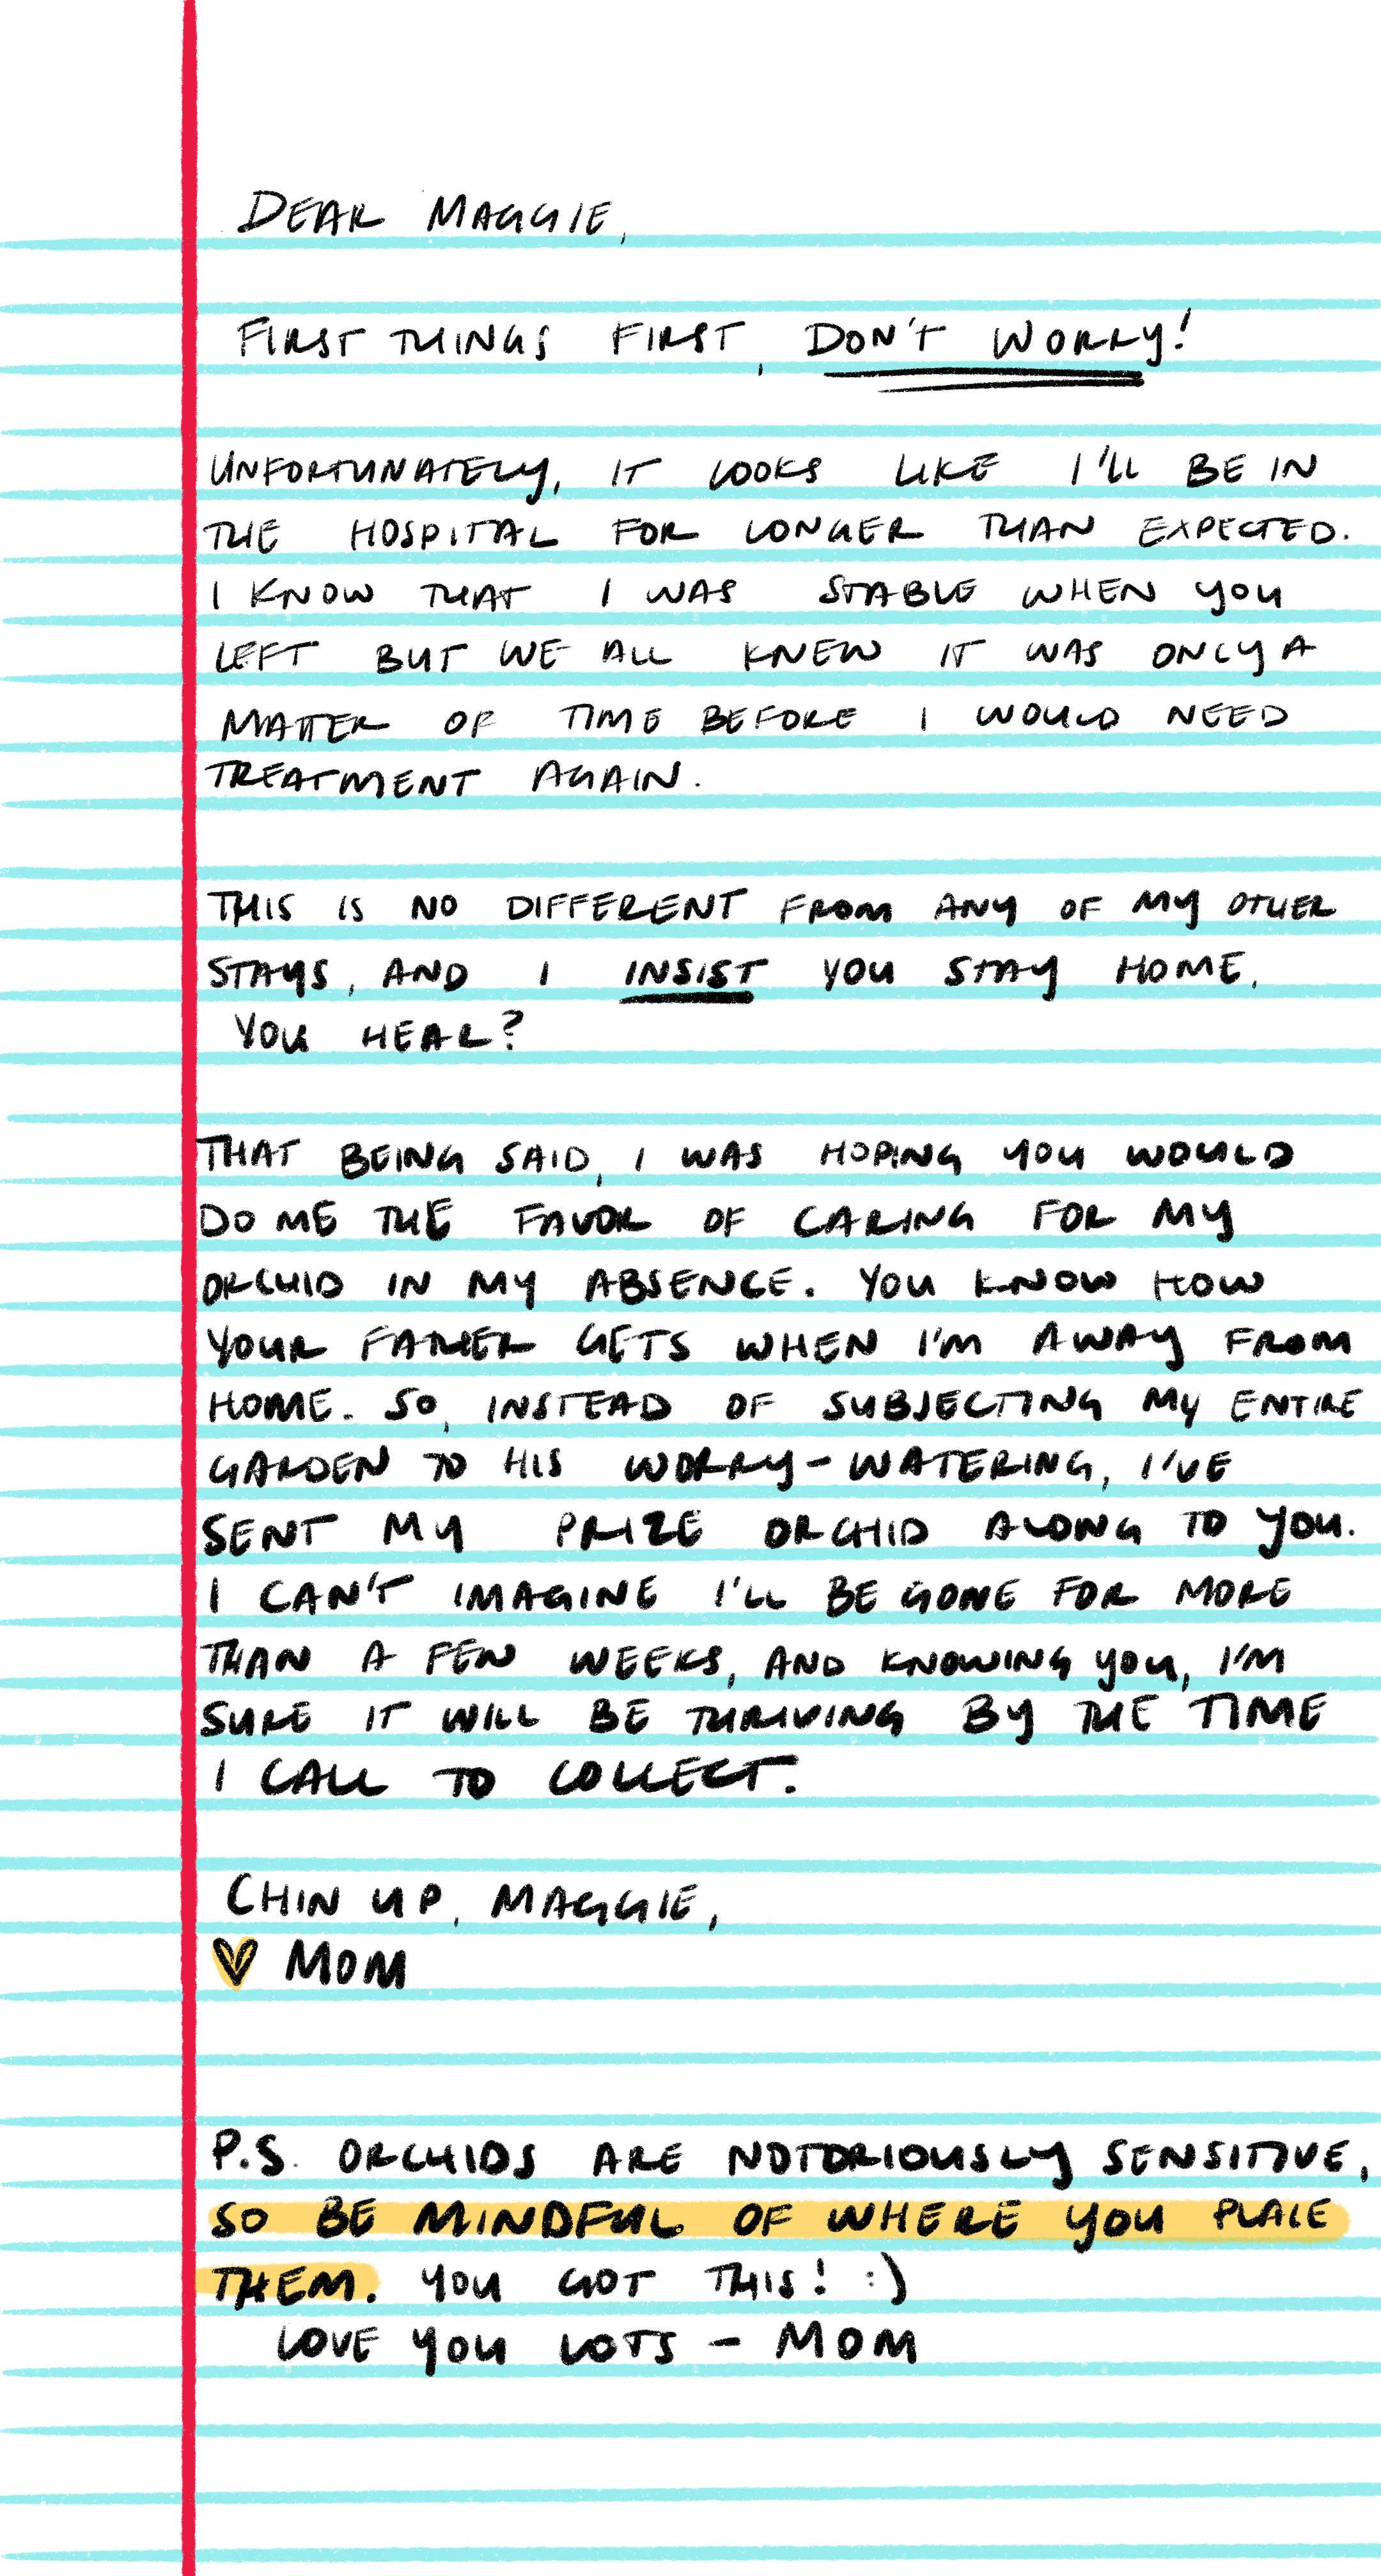 DEAR MAGGIE,
FIRST THINGS FIRST, DON'T WORRY!
UNFORTUNATELY, IT LOOKS LIKE I'LL BE IN
THE HOSPITAL FOR LONGER THAN EXPECTED.
I KNOW THAT I WAS STABLE WHEN YOU
LEFT BUT WE ALL KNEW IT WAS ONLY A
MATTER OF TIME BEFORE I WOULD NEED
TREATMENT AGAIN.
THIS IS NO DIFFERENT FROM ANY OF MY OTHER
STAYS, AND I INSIST YOU STAY HOME,
YOU HEAR?
THAT BEING SAID, I WAS HOPING YOU WOULD
DO ME THE FAVOR OF CARING FOR MY
ORCHID IN MY ABSENCE. YOU KNOW HOW
YOUR FATHER GETS WHEN I'M AWAY FROM
HOME. SO, INSTEAD OF SUBJECTING MY ENTIRE
GARDEN TO HIS WORRY-WATERING, I'VE
SENT MY PRIZE ORCHID ALONG TO YOU.
I CAN'T IMAGINE I'LL BE GONE FOR MORE
THAN A FEW WEEKS, AND KNOWING YOU, I'M
SURE IT WILL BE THRIVING BY THE TIME
I CALL TO COLLECT.
CHIN UP, MAGGIE,
♥ MOM
P.S. ORCHIDS ARE NOTORIOUSLY SENSITIVE,
SO BE MINDFUL OF WHERE YOU PLACE
THEM. YOU GOT THIS! :)
LOVE YOU LOTS - MOM